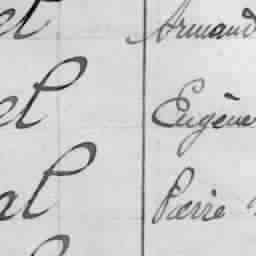 et Armand
el Eugène
al Pierre